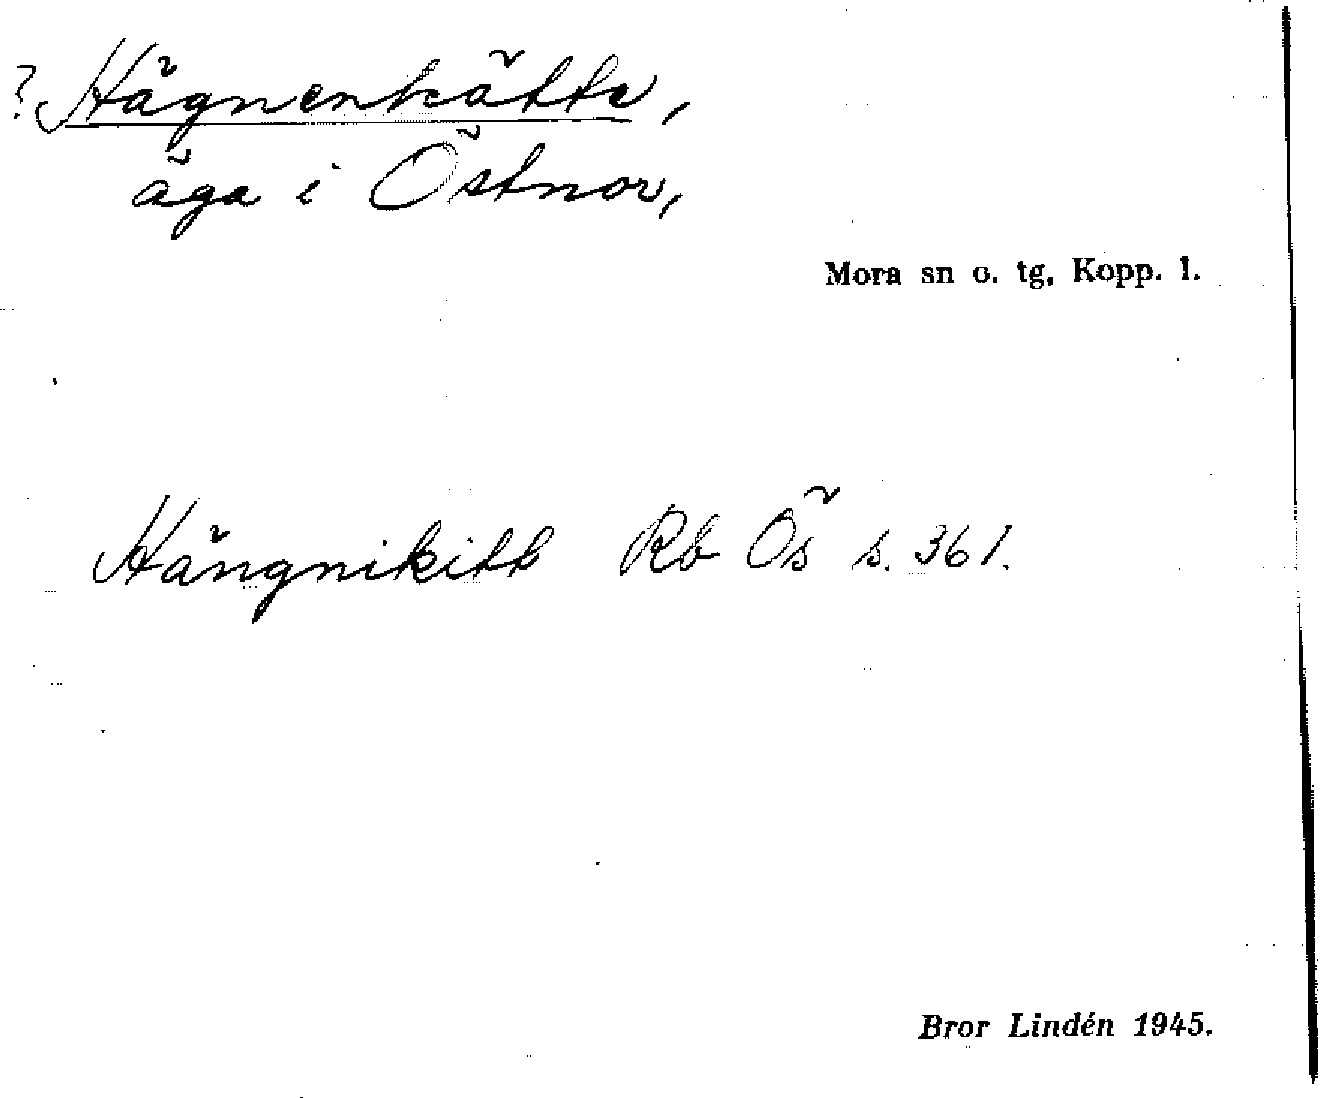 ? Hägnenkätte,
äga i Östnor,
Mora sn o. tg, Kopp. l.
Hängnikitt Rb Ös s. 361.
Bror Lindén 1945.